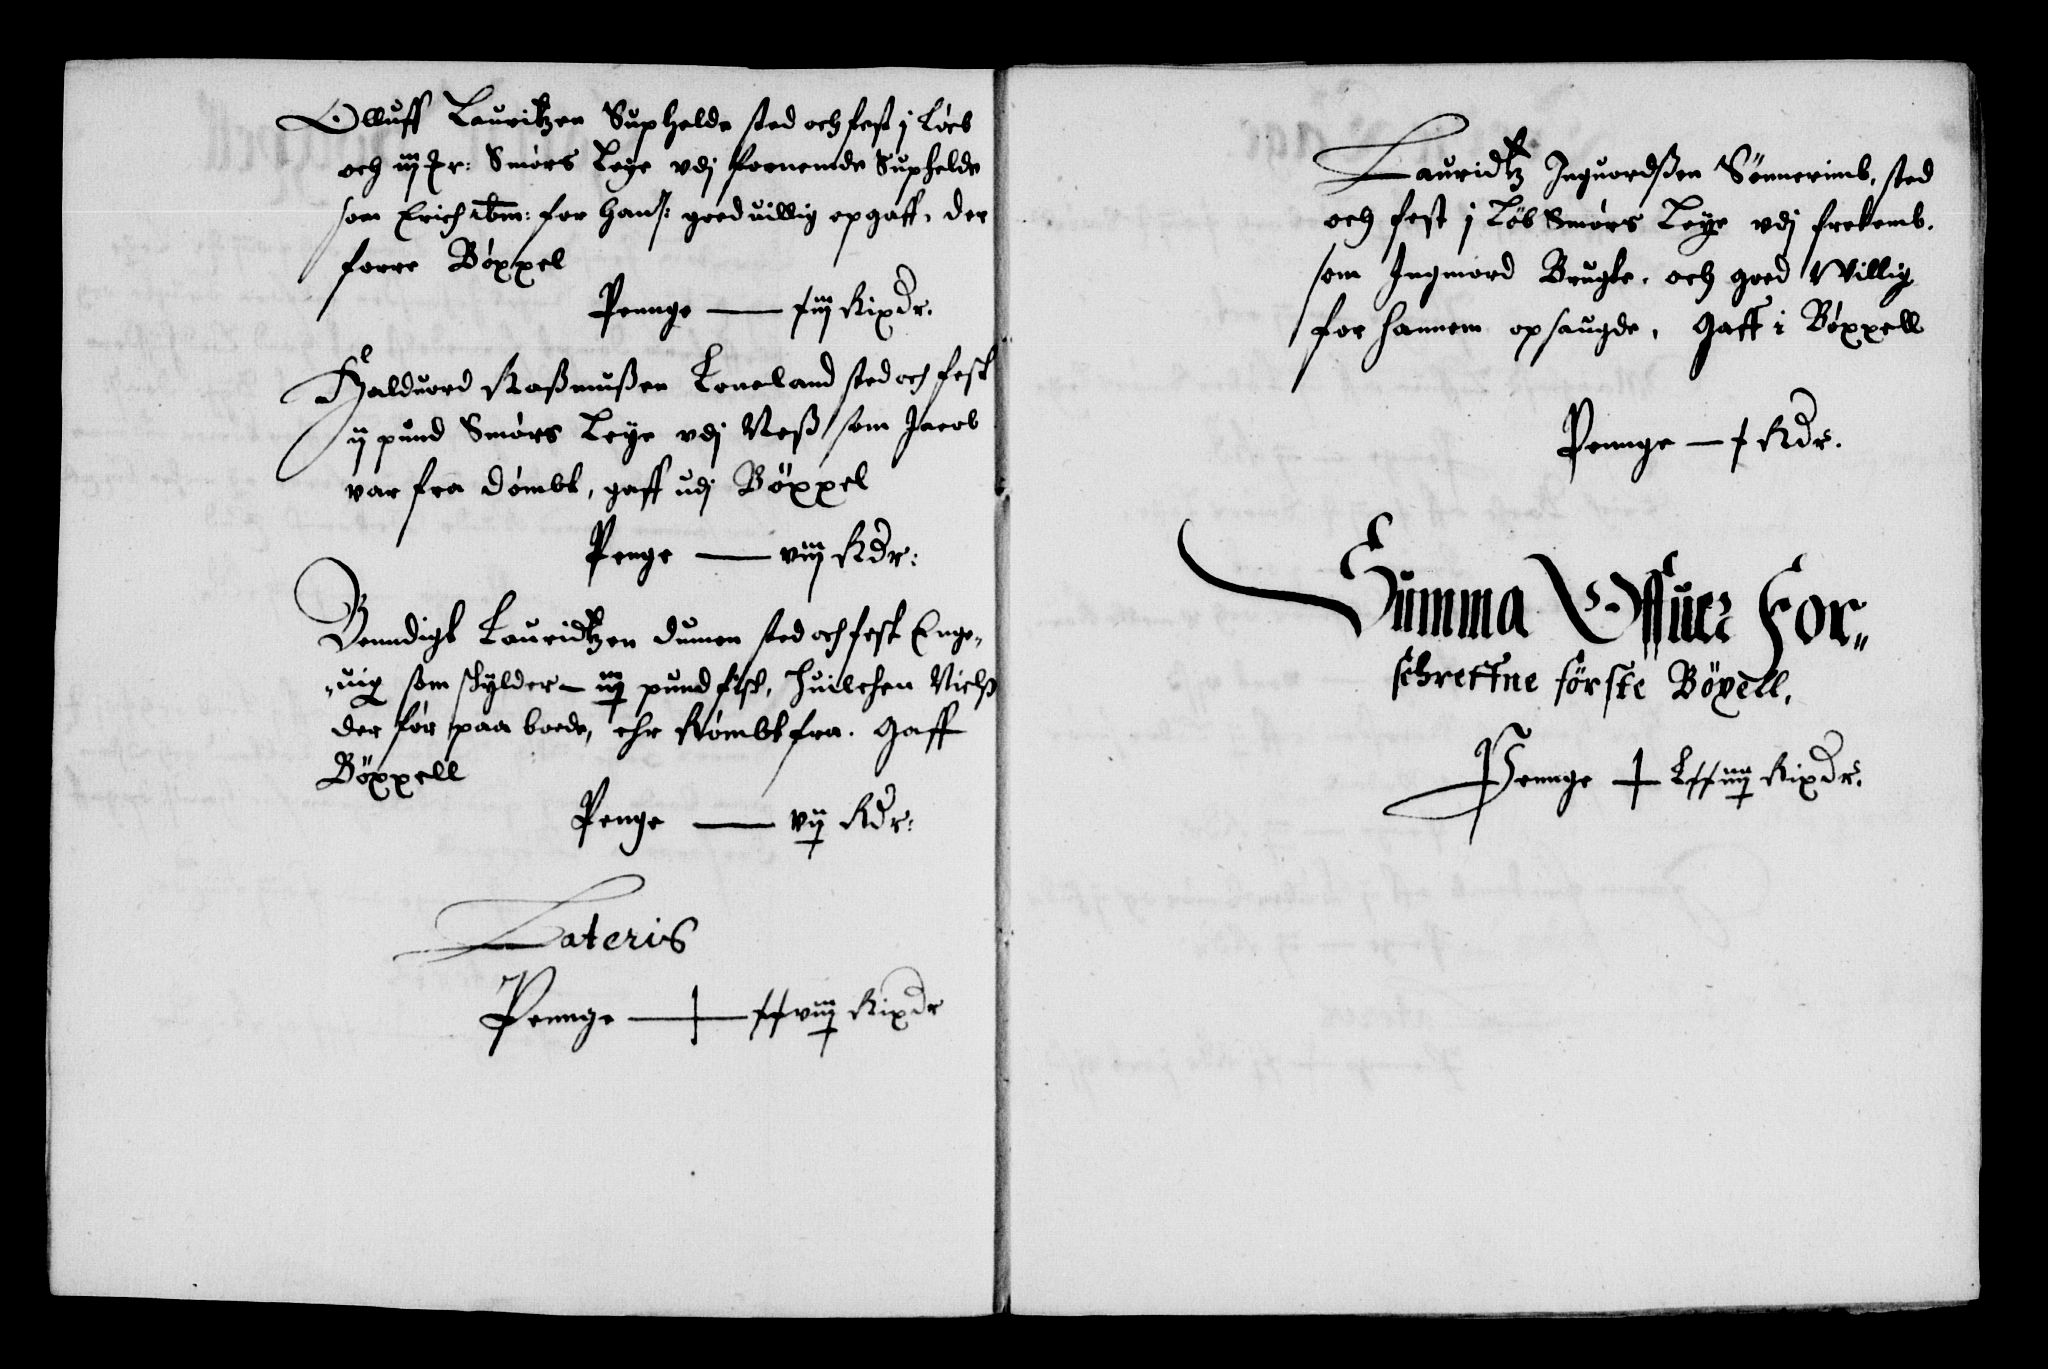 Olluff Lauritzen Suphelde sted och fest j Løeb
och iij pr: Smørs Leye vdj fornemde Suphelde
som Erich ibm: for hans: goeduillig opgaff, der
forre Bøxxel
Pennge — xiij Rixdr.
Halduord Raßmußen Loneland sted och fest
ij pund Smørs Leye vdj Neß som Jacob
var fra dømbt, gaff udj Böxxel
Penge — viij Rdr:
Benndigt Lauridtzen dumen sted och fest Enge„
„uig som skylder – iij pund fisk, huilchen Nielß
der før paa boede, ehr Rømbt fra. Gaff
Böxxell
Penge — vij Rdr:
Lateris
Pennge — xxviij Rixdr
Lauridtz Inguordßen Sönnerimb, sted
och fest j Løb Smørs Leye vdj
som Ingword Brugte, och goed Willig
for hannem opsaugde, Gaff i Bøxxell
Pennge — x Rdr.
Summa Offuer For„
schreffne förste Böxell.
Pennge — Lxxiiij Rixdr.